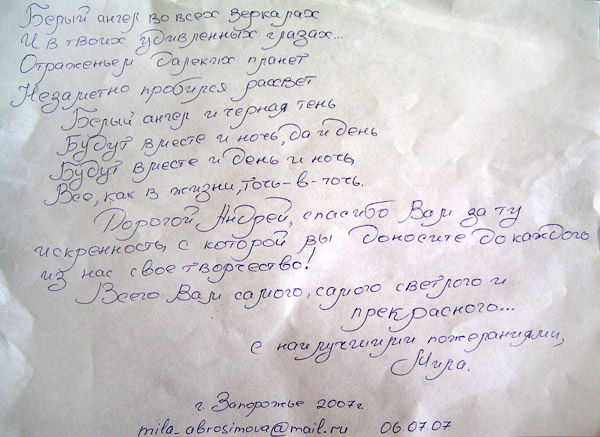 Белый ангел во всех зеркалах
И в твоих удивленных глазах...
Отраженьем далеких планет
Незаметно пробился рассвет
Белый ангел и черная тень
Будут вместе и ночь, да и день
Будут вместе и день и ночь
Все, как в жизни, точь-в-точь.
Дорогой Андрей, спасибо Вам за ту
искренность, с которой вы доносите до каждого
из нас свое творчество!
Всего Вам самого, самого светлого и
прекрасного...
с наилучшими пожеланиями,
Мила.
г. Запорожье 2007г.
mila_abrosimova@mail.ru 06.07.07